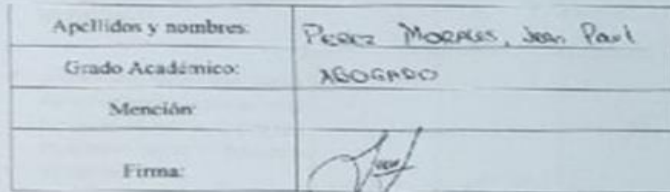 Apellidos y nombres: Perez Morales, Jean Paul
Grado Académico: ABOGADO
Mención:
Firma: